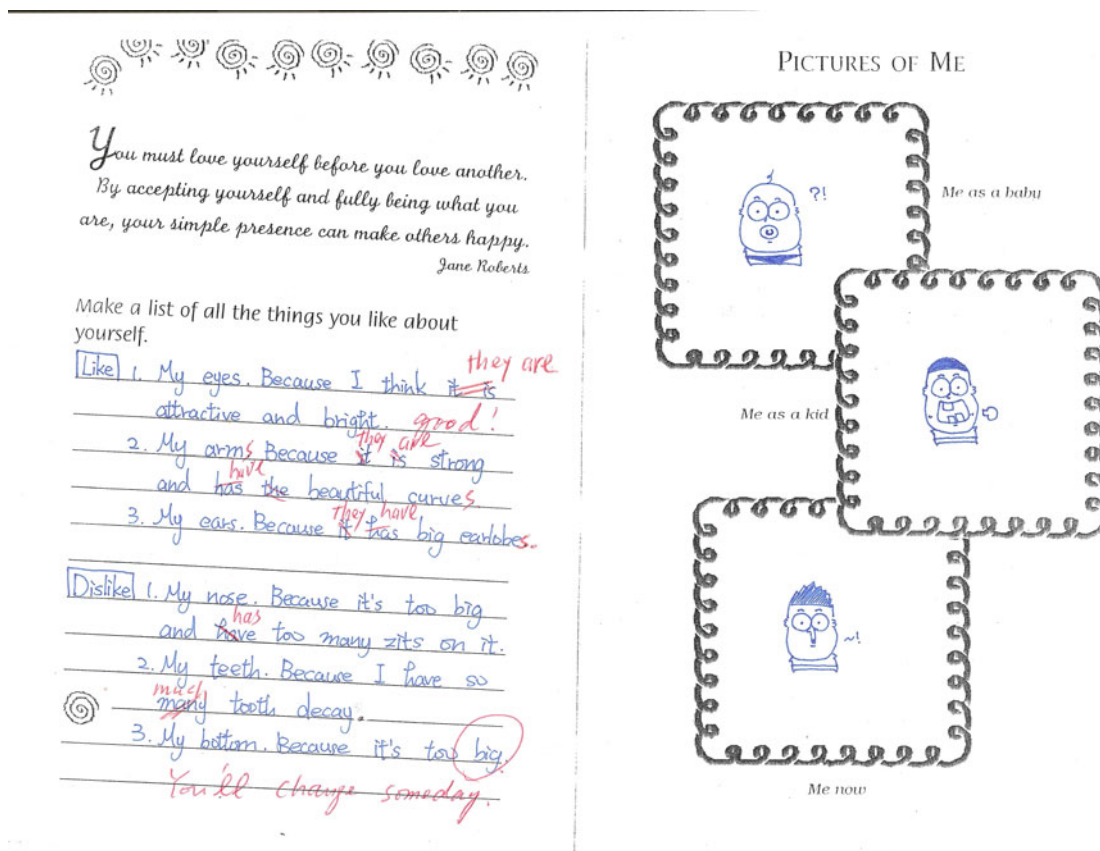 You must love yourself before you love another.
By accepting yourself and fully being what you
are, your simple presence can make others happy.
Jane Roberts
Make a list of all the things you like about
yourself.
they are
Like 1. My eyes. Because I think it is
attractive and bright. good!
they are
2. My arms Because it is strong
have
and has the beautiful curves.
they have
3. My ears. Because it has big earlobes.
Dislike 1. My nose. Because it's too big
has
and have too many zits on it.
2. My teeth. Because I have so
much
many tooth decay.
3. My bottom. Because it's too big.
You'll change someday.
PICTURES OF ME
?!
Me as a baby
Me as a kid
~!
Me now